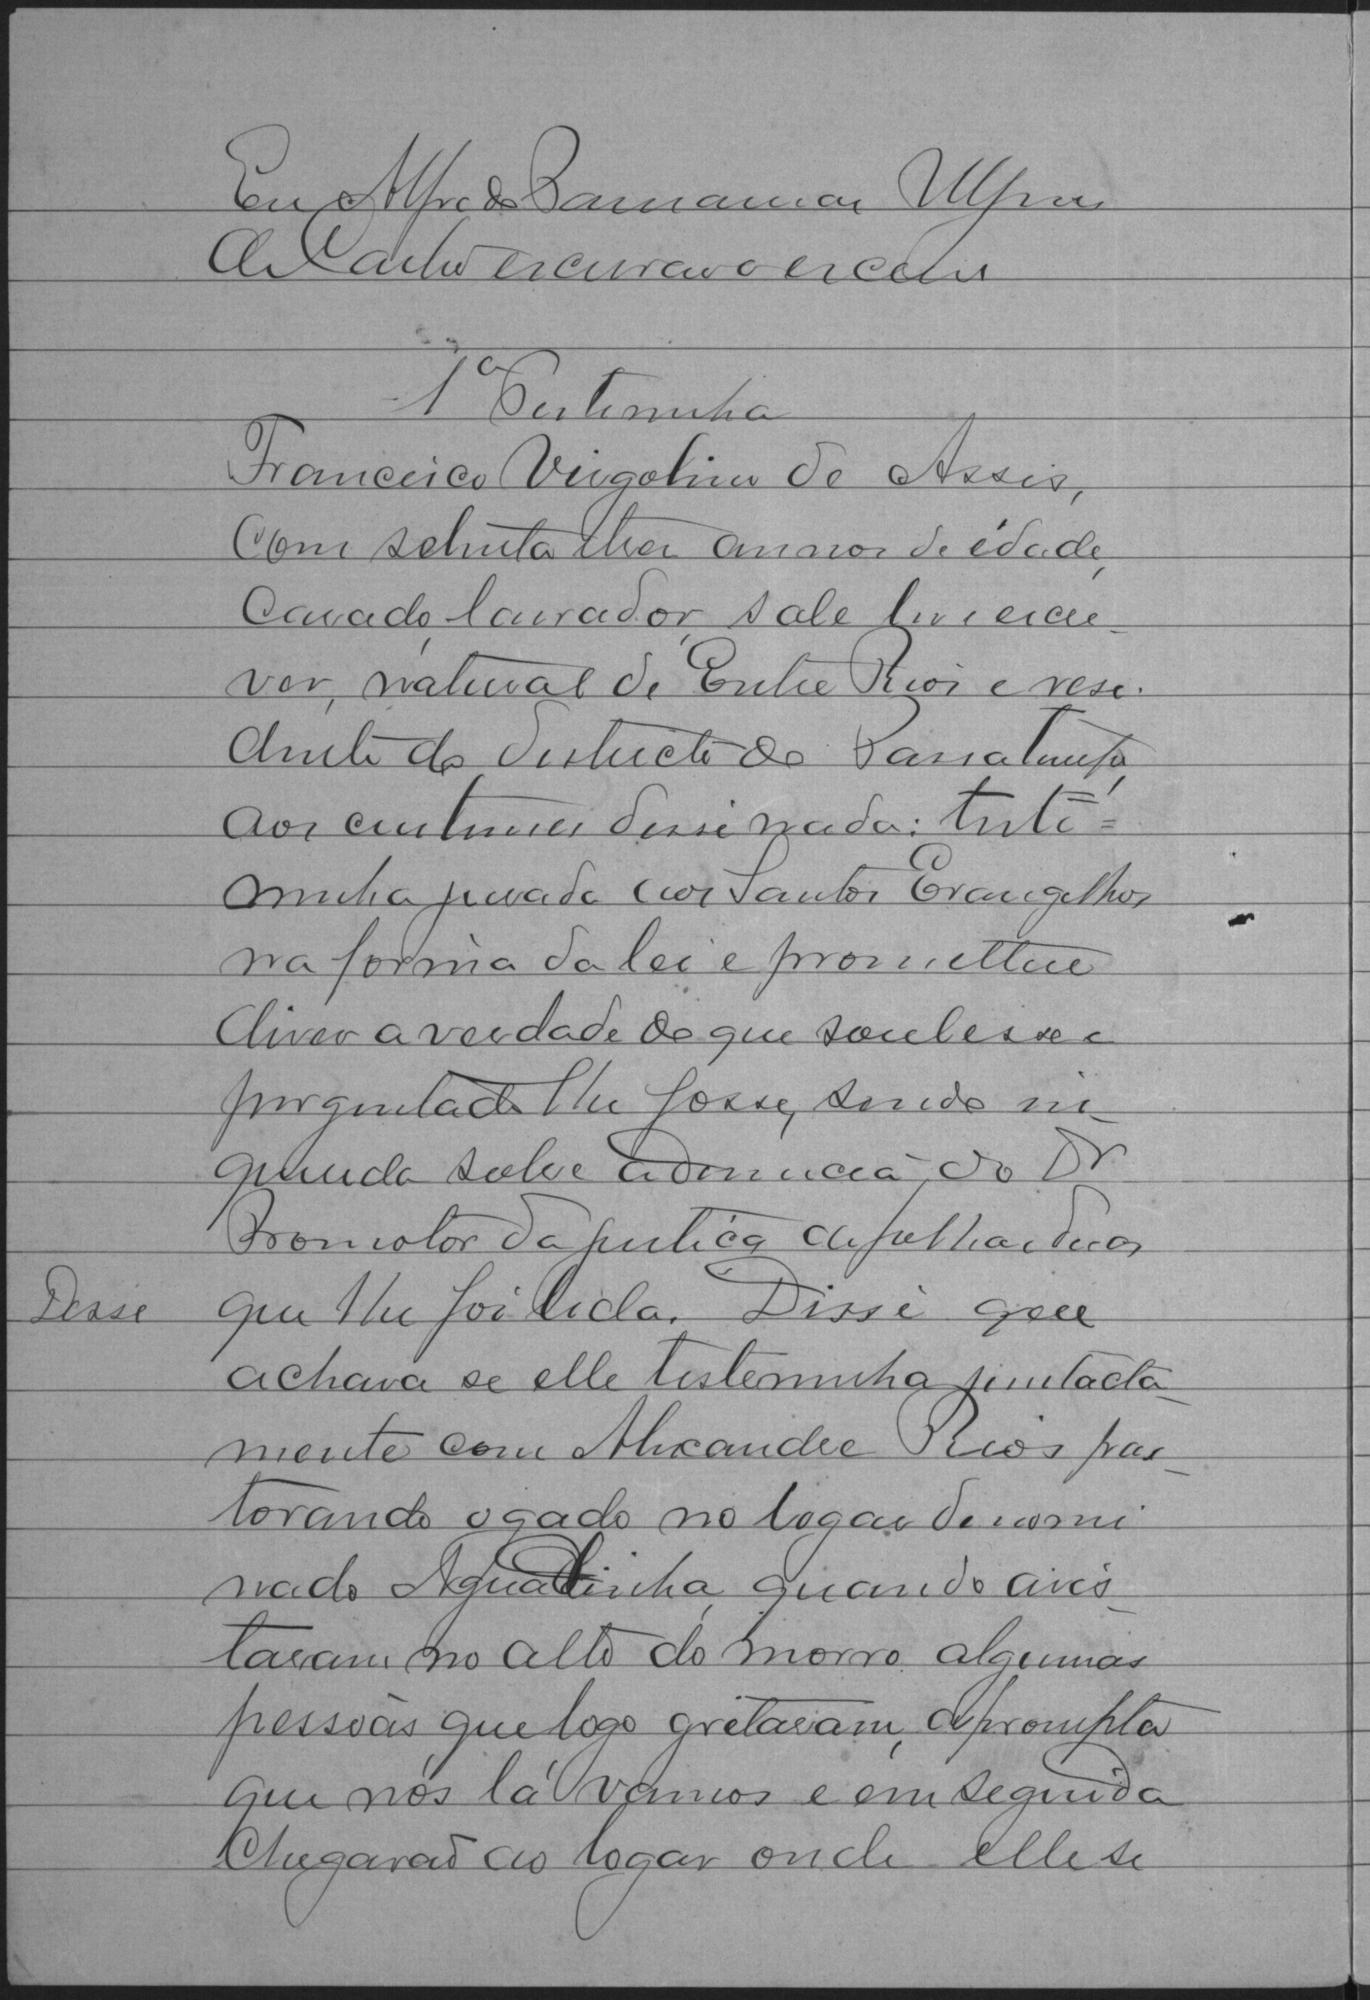 Eu Alfredo
de Castro escrivão o escrevi
1ª Testemunha
Francisco Virgolino de Assis,
com setenta tres annos de édade,
Casado, lavrador, sabe ler e escre-
ver, natural de Entre Rios e resi-
dente do districto do
aos custumes disse nada: teste=
munha jurada aos Santos Evangelhos
na forma da lei e prometteu
diser a verdade do que soubesse e
perguntado lhe fosse, sendo in-
querida sobre a denuncia do Dr
Promotor da justiça de folhas duas
Disse
que lhe foi lida. Disse que
achava se elle testemunha juntacta-
mente com Alexandre Rios pas-
torando o gado no logar denomi
nado Aguadinha, quando avis-
taram no alto do morro algumas
pessoas que logo gritaram, aprompta
que nós lá vamos e em seguida
Chegarão ao logar onde elle se